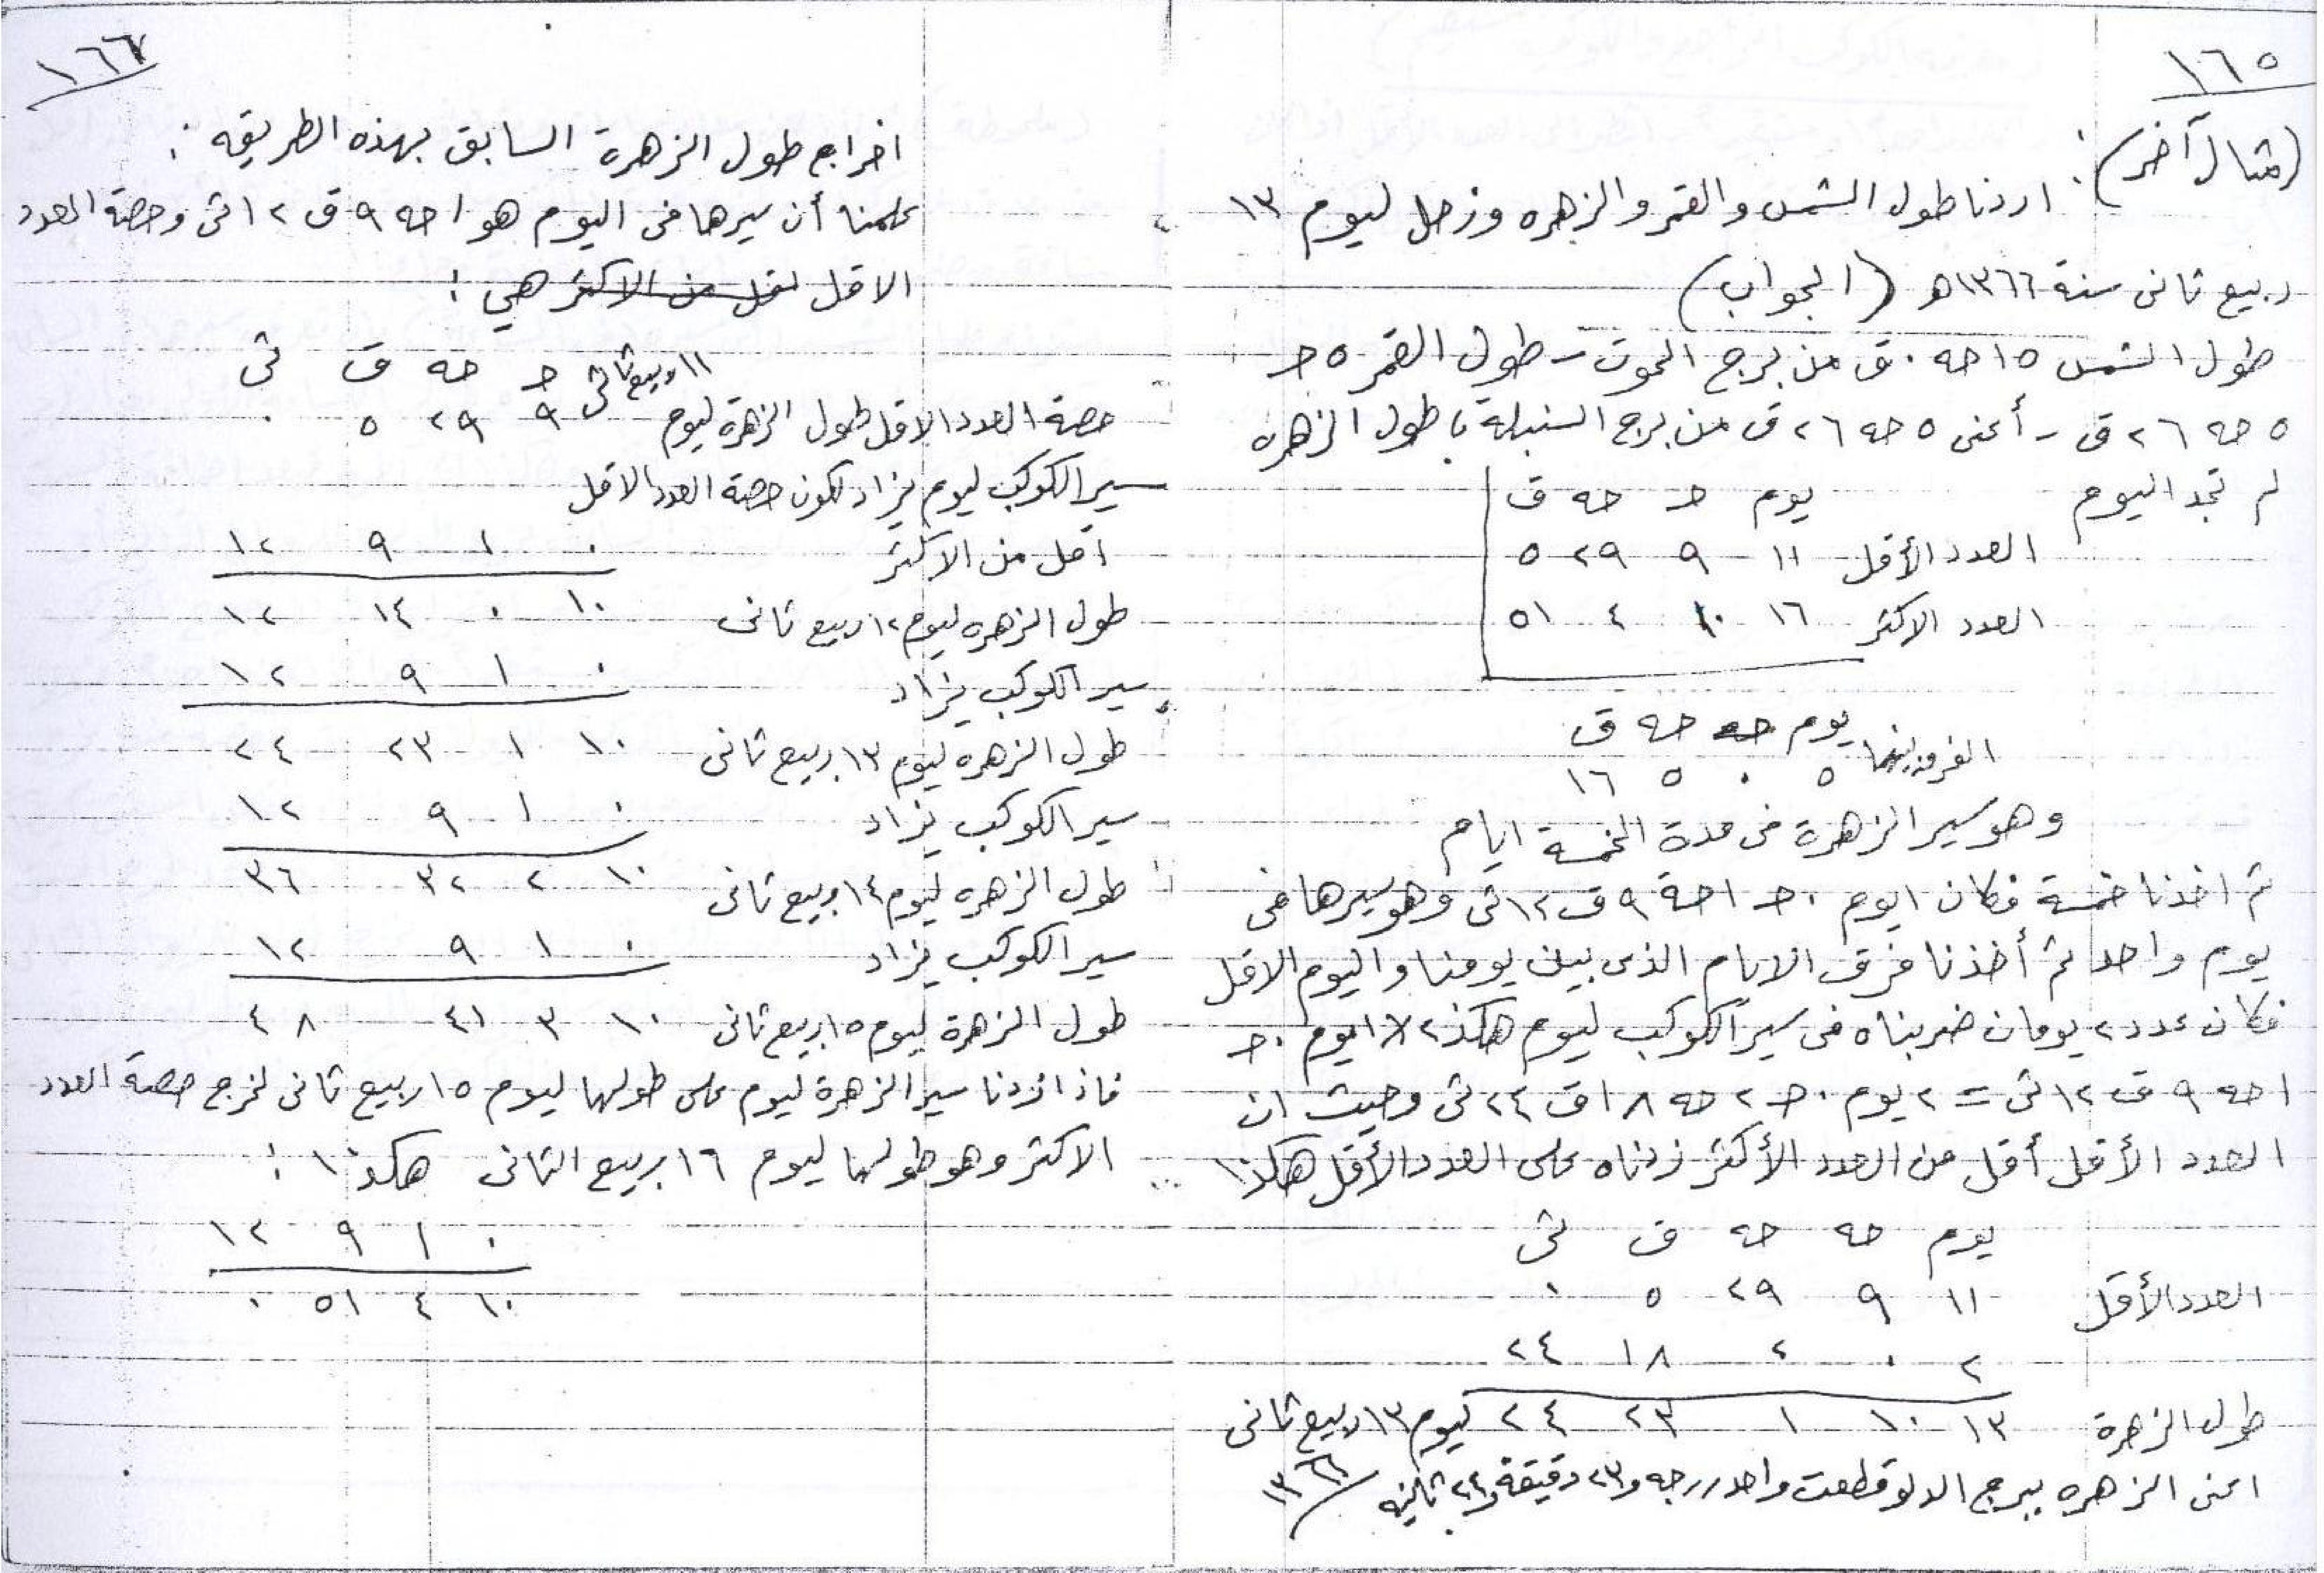 ١٦٥
(مثال آخر): اردنا طول الشمس والقمر والزهره وزحل ليوم ١٣
ربيع ثانى سنة ١٣٦٦ھ (الجواب)
طول الشمس ١٥ حه ٠ ق من برج الحوت - طول القمر ٥ حـ
٥ حه ٢٦ ق - أعنى ٥ حه ٢٦ ق من برج السنبلة، طول الزهره
لم تجد اليوم يوم حـ حه ق
العدد الأقل ١١ ٩ ٢٩ ٥
العدد الاكثر ١٦ ١٠ ٤ ٥١
الفرق بينهما يوم حه حه ق
٥ ٠ ٥ ١٦
وهو سير الزهرة فى مدة الخمسة ايام
ثم اخذنا خمسة فكان ١ يوم ٠ حـ ١ حة ٩ ق ١٢ ثى وهو سيرها فى
يوم واحد ثم أخذنا فرق الايام الذى بين يومنا واليوم الاقل
فكان عدد ٢ يومان ضربناه فى سير الكوكب ليوم هكذ ٢ × ١ يوم ٠ حـ
١ حه ٩ ق ١٢ ثى = ٢ يوم ٠ حـ ٢ حه ١٨ ق ٢٤ ثى وحيث ان
العدد الأقل أقل من العدد الأكثر زدناه على العدد الأقل هكذا
يوم حه حه ق ثى
العدد الأقل ١١ ٩ ٢٩ ٥ ٠
٢ ٠ ٢ ١٨ ٢٤
طول الزهرة ١٣ ١٠ ١ ٢٣ ٢٤ ليوم ١٣ ربيع ثانى
اعنى الزهره ببرج الدلو قطعت واحد درجه و ٢٣ دقيقة و ٢٤ ثانيه ١٣٦٦
١٦٦
اخراج طول الزهرة السابق بهذه الطريقه:
علمنا أن سيرها فى اليوم هو ١ حه ٩ ق ١٢ ثى وحصة العدد
الاقل لقل من الاكثر هي:
١١ ربيع ثانى حـ حه ق ثى
حصة العدد الاقل طول الزهرة ليوم ٩ ٢٩ ٥ ٠
سير الكوكب ليوم يزاد لكون حصة العدد الاقل
اقل من الاكثر ٠ ١ ٩ ١٢
طول الزهره ليوم ١٢ ربيع ثانى ١٠ ٠ ١٤ ١٢
سير الكوكب يزاد ٠ ١ ٩ ١٢
طول الزهره ليوم ١٣ ربيع ثانى ١٠ ١ ٢٣ ٢٤
سير الكوكب يزاد ٠ ١ ٩ ١٢
طول الزهره ليوم ١٤ ربيع ثانى ١٠ ٢ ٣٢ ٣٦
سير الكوكب يزاد ٠ ١ ٩ ١٢
طول الزهرة ليوم ١٥ ربيع ثانى ١٠ ٣ ٤١ ٤٨
فاذا زدنا سير الزهرة ليوم على طولها ليوم ١٥ ربيع ثانى لخرج حصة العدد
الاكثر وهو طولها ليوم ١٦ ربيع الثانى هكذا:
٠ ١ ٩ ١٢
١٠ ٤ ٥١ ٠